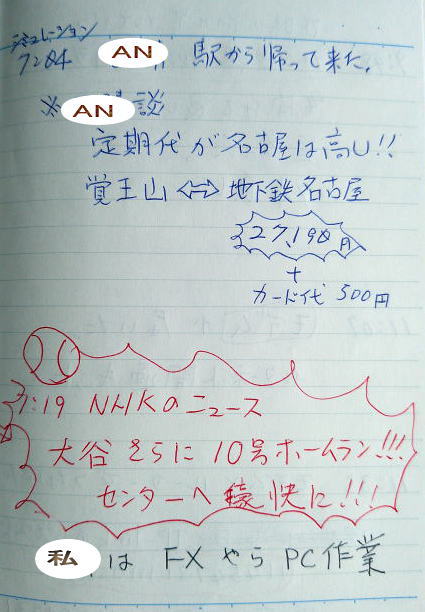 シミュレーション
7:04 AN 駅から帰って来た。
※ AN 談
定期代が名古屋は高い!!
覚王山⇔地下鉄名古屋
27,190円
+
カード代 500円
7:19 NHKのニュース
大谷さらに10号ホームラン!!!
センターへ豪快に!!!
私 は FXやらPC作業